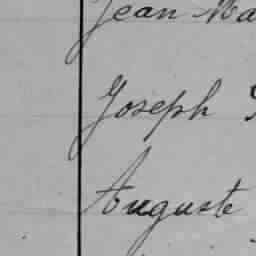 Jean Ma
Joseph
Auguste